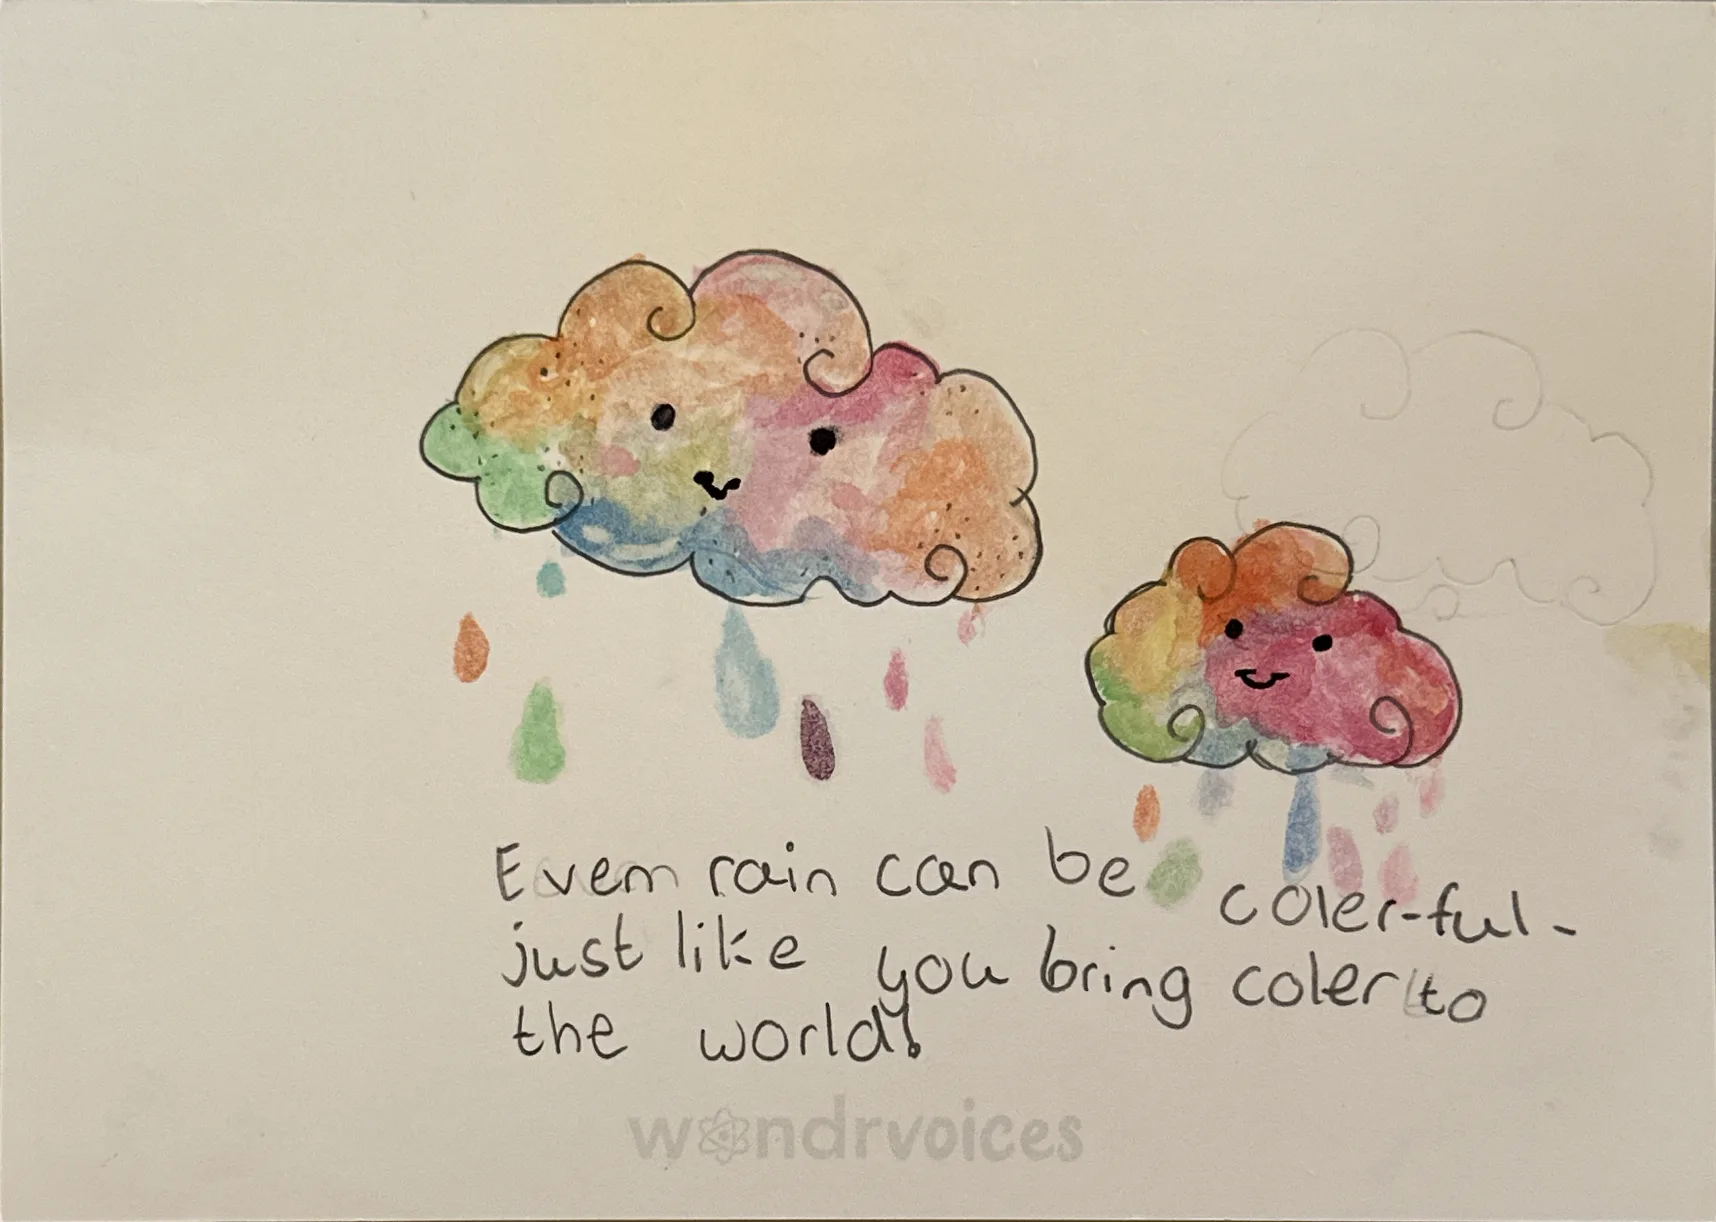 Even rain can be coler-ful-
just like you bring coler to
the world!
wondrvoices